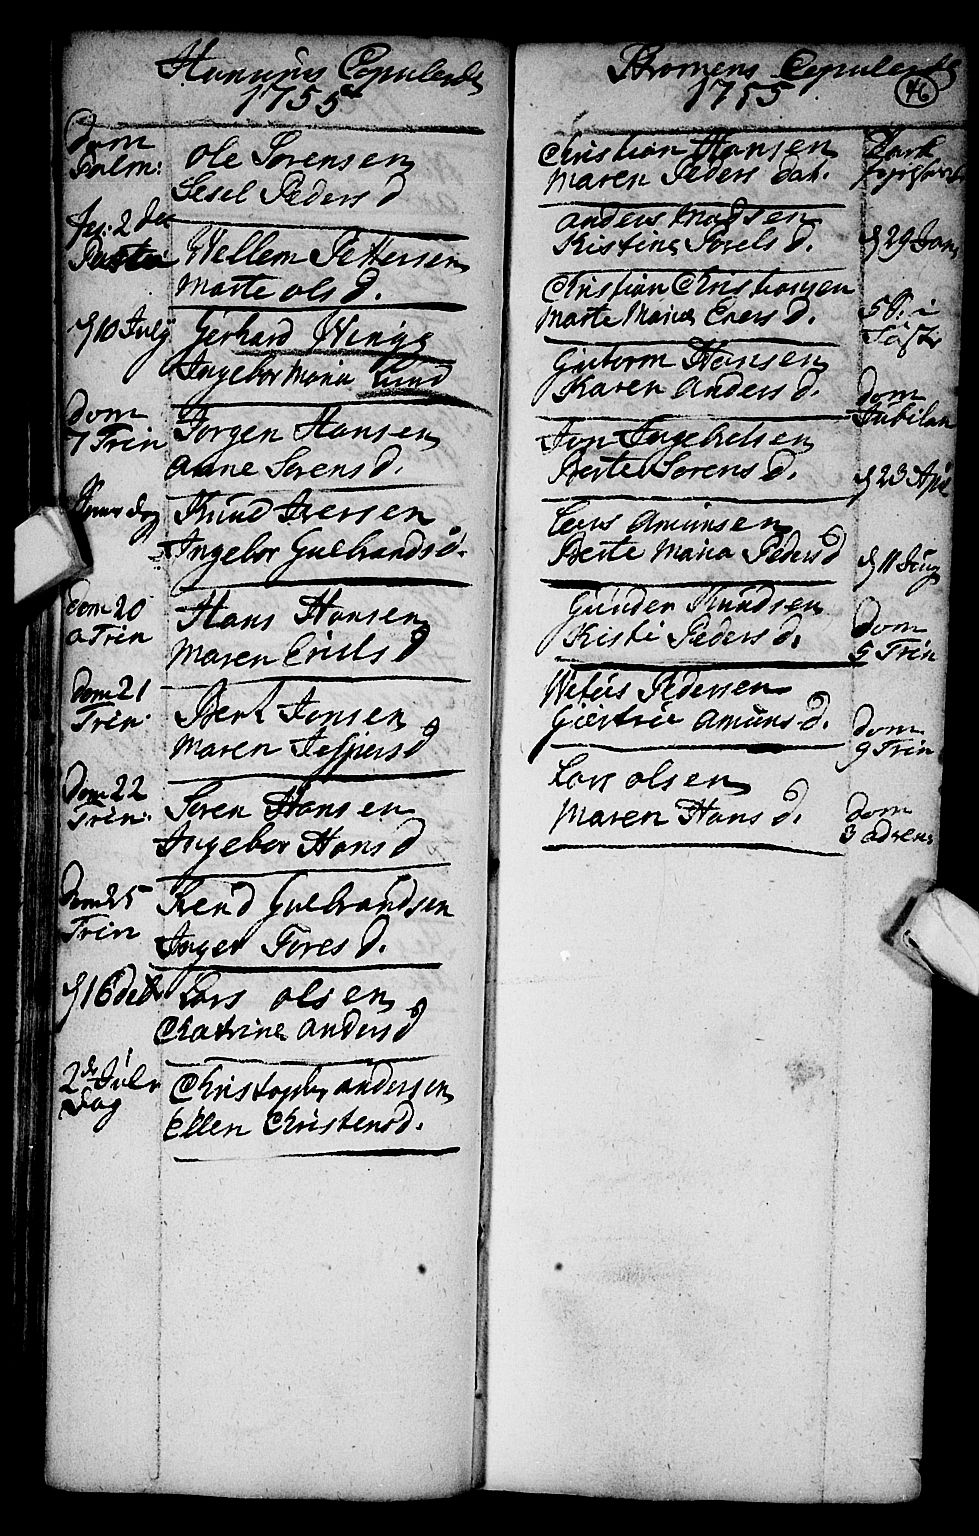 Hunnings Copulerede
1755
dom Palm:
Ole Sørensen
Sesel Peders d
fer: 2 den
Wellem Pettersen
Marte Ols d.
d 10 July
Gerhard Winge
Ingebor Maria Lund
dom 7 Trin
Jørgen Hansen
Anne Sørens d.
Knud Iversen
Ingebor Gulbrands d.
dom 20 a Trin
Hans Hansen
Maren Eriks d
dom 21 Trin.
Bert Jonsen
Maren Jespers d
dom 22 Trin.
Søren Hansen
Ingebor Hans d
dom 25 Trin
Knud Gulbrandsen
Inger Tores d.
d 16 decbr
Lars Olsen
Chatrine Anders d
2 Jule dag
Christopher Andersen
Ellen Christens d.
Stromens Copulerede
46
1755
Christian Hansen
Maren Peders dat.
Anders Madsen
Kristine Povels d.
d 29 Jan
Christian Christiansen
Marte Maria Evers d.
5 S. i Faste
Guttorm Hansen
Karen Anders d.
dom Jubilate
Jon Ingebretsen
Berte Sørens d.
d 23 Apr
Lars Amunsen
Berte Maria Peders d
d 11 Juny
Gunder Knudsen
Kisti Peders d.
dom 5 Trin
Pedersen
Giertru Amuns d.
dom 9 Trin
Lars Olsen
Maren Hans d.
dom 3 advent